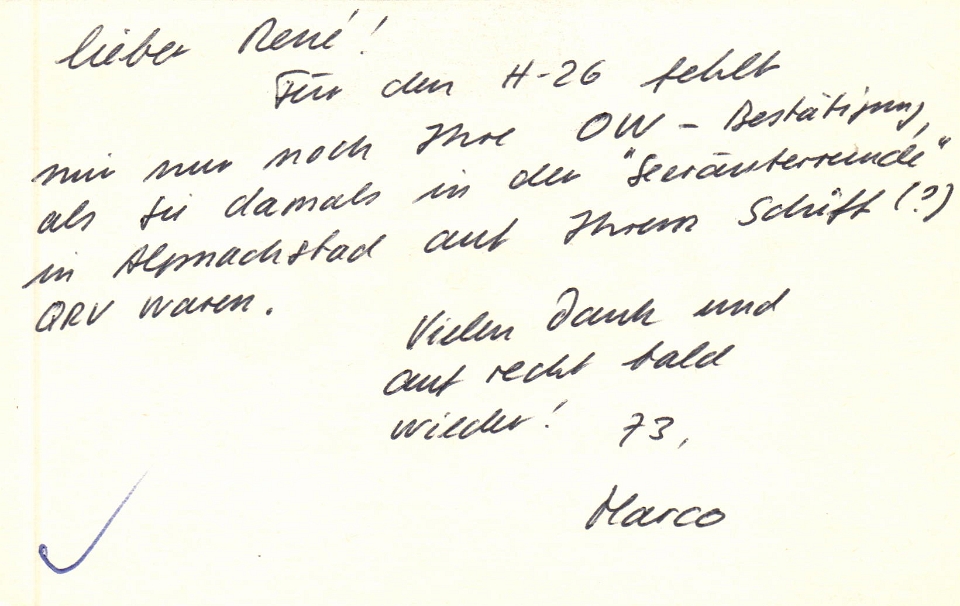 lieber René!
Für den H-26 fehlt
mir nur noch Ihre OW-Bestätigung,
als Sie damals in der "Seeräuberrunde"
in Alpnachstad auf Ihrem Schiff (?)
QRV waren.
Vielen Dank und
auf recht bald
wieder! 73,
Marco